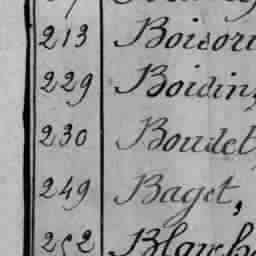 213 Boisori
229 Boidin,
230 Boudet,
249 Baget,
252 Blanch